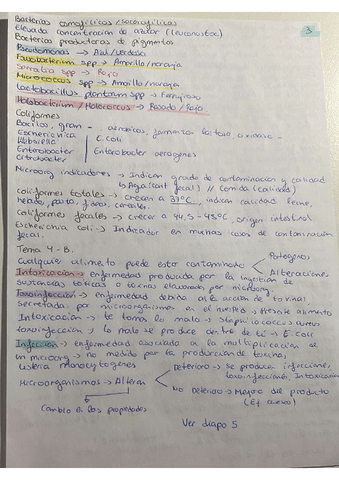 3
Bacterias osmofílicas/sacarofílicas
Elevada concentración de azúcar (Leuconostoc)
Bacterias productoras de pigmentos
Pseudomonas → Azul/verdoso
Flavobacterium spp → Amarillo/naranja
Serratia spp → Rojo
Micrococcus spp → Amarillo/naranja
Lactobacillus plantarum spp → Ferruginoso
Halobacterium / Halococcus → Rosado / Rojo
Coliformes
Bacilos, gram - aerobios, lactosa
Escherichia E. coli
Klebsiella
Enterobacter Enterobacter aerogenes
Citrobacter
Microorg indicadores → Indican grado de contaminación y calidad
↳ Agua (cont fecal) // Comida (calidad)
Coliformes totales → crecen a 37ºC, indican calidad leche,
helado, pasta, jugos, cereales.
Coliformes fecales → crecen a 44,5 - 45ºC, origen intestinal
Escherichia coli → Indicador en muchos casos de contaminación
fecal.
Tema 4 - B.
Cualquier alimento puede estar contaminado Patógenos
Alteraciones
Intoxicación → enfermedad producida por la ingestión de
sustancias tóxicas o toxinas elaboradas por microorg
Toxoinfección → enfermedad debida a la acción de toxinas
secretadas por microorganismos en el huésped
Intoxicación → te tomas lo malo → Staphilococcus aureus
toxoinfección → lo malo se produce dentro de ti → E coli
Infección → enfermedad asociada a la multiplicación de
un microorg → no medido por la producción de toxina,
Listeria monocytogenes
Deterioro → Se produce infecciones,
toxoinfecciones, Intoxicaciones
Microorganismos → Alteran
No Deterioro → Mejora del producto
(Ej queso)
Cambio en las propiedades
Ver diapo 5